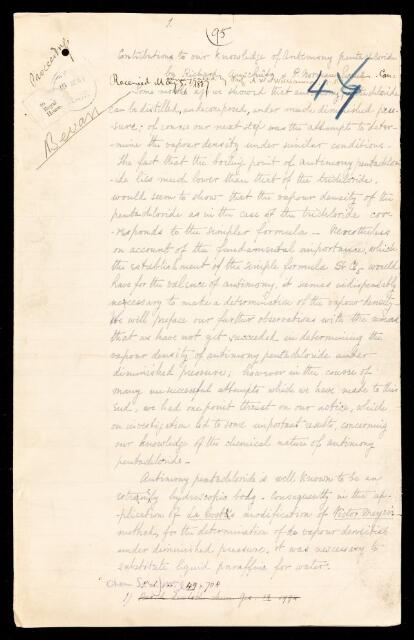 1
(95)
Proceedings
Contributions to our knowledge of Antimony pentachloride
by Richard Anschütz & P. Norman Evans. Com.
Received May 5. 1887
Some months ago we showed that antimony pentachloride
can be distilled, undecomposed, under much diminished pres-
sure; of course our next step was the attempt to deter-
mine the vapour density under similar conditions.
The fact that the boiling point of antimony pentachlori-
de lies much lower than that of the trichloride,
would seem to show that the vapour density of the
pentachloride as in the case of the trichloride cor-
responds to the simpler formula - Nevertheless
on account of the fundamental importance, which
the establishment of the simple formula Sb Cl5 would
have for the valence of antimony, it seems indispensably
necessary to make a determination of the vapour density -
We will preface our further observations with the remark
that we have not yet succeeded in determining the
vapour density of antimony pentachloride under
diminished pressure; however in the course of
many unsuccessful attempts which we have made to this
end, we had one point thrust on our notice, which
on investigation led to some important results, concerning
our knowledge of the chemical nature of antimony
pentachloride -
Antimony pentachloride is well known to be an
extremely hydroscopic body. Consequently in the ap-
plication of La Coste's modification of Victor Meyer's
method, for the determination of the vapour densities
under diminished pressure, it was necessary to
substitute liquid paraffine for water.
Chem Soc. J. 1886, 49, 708